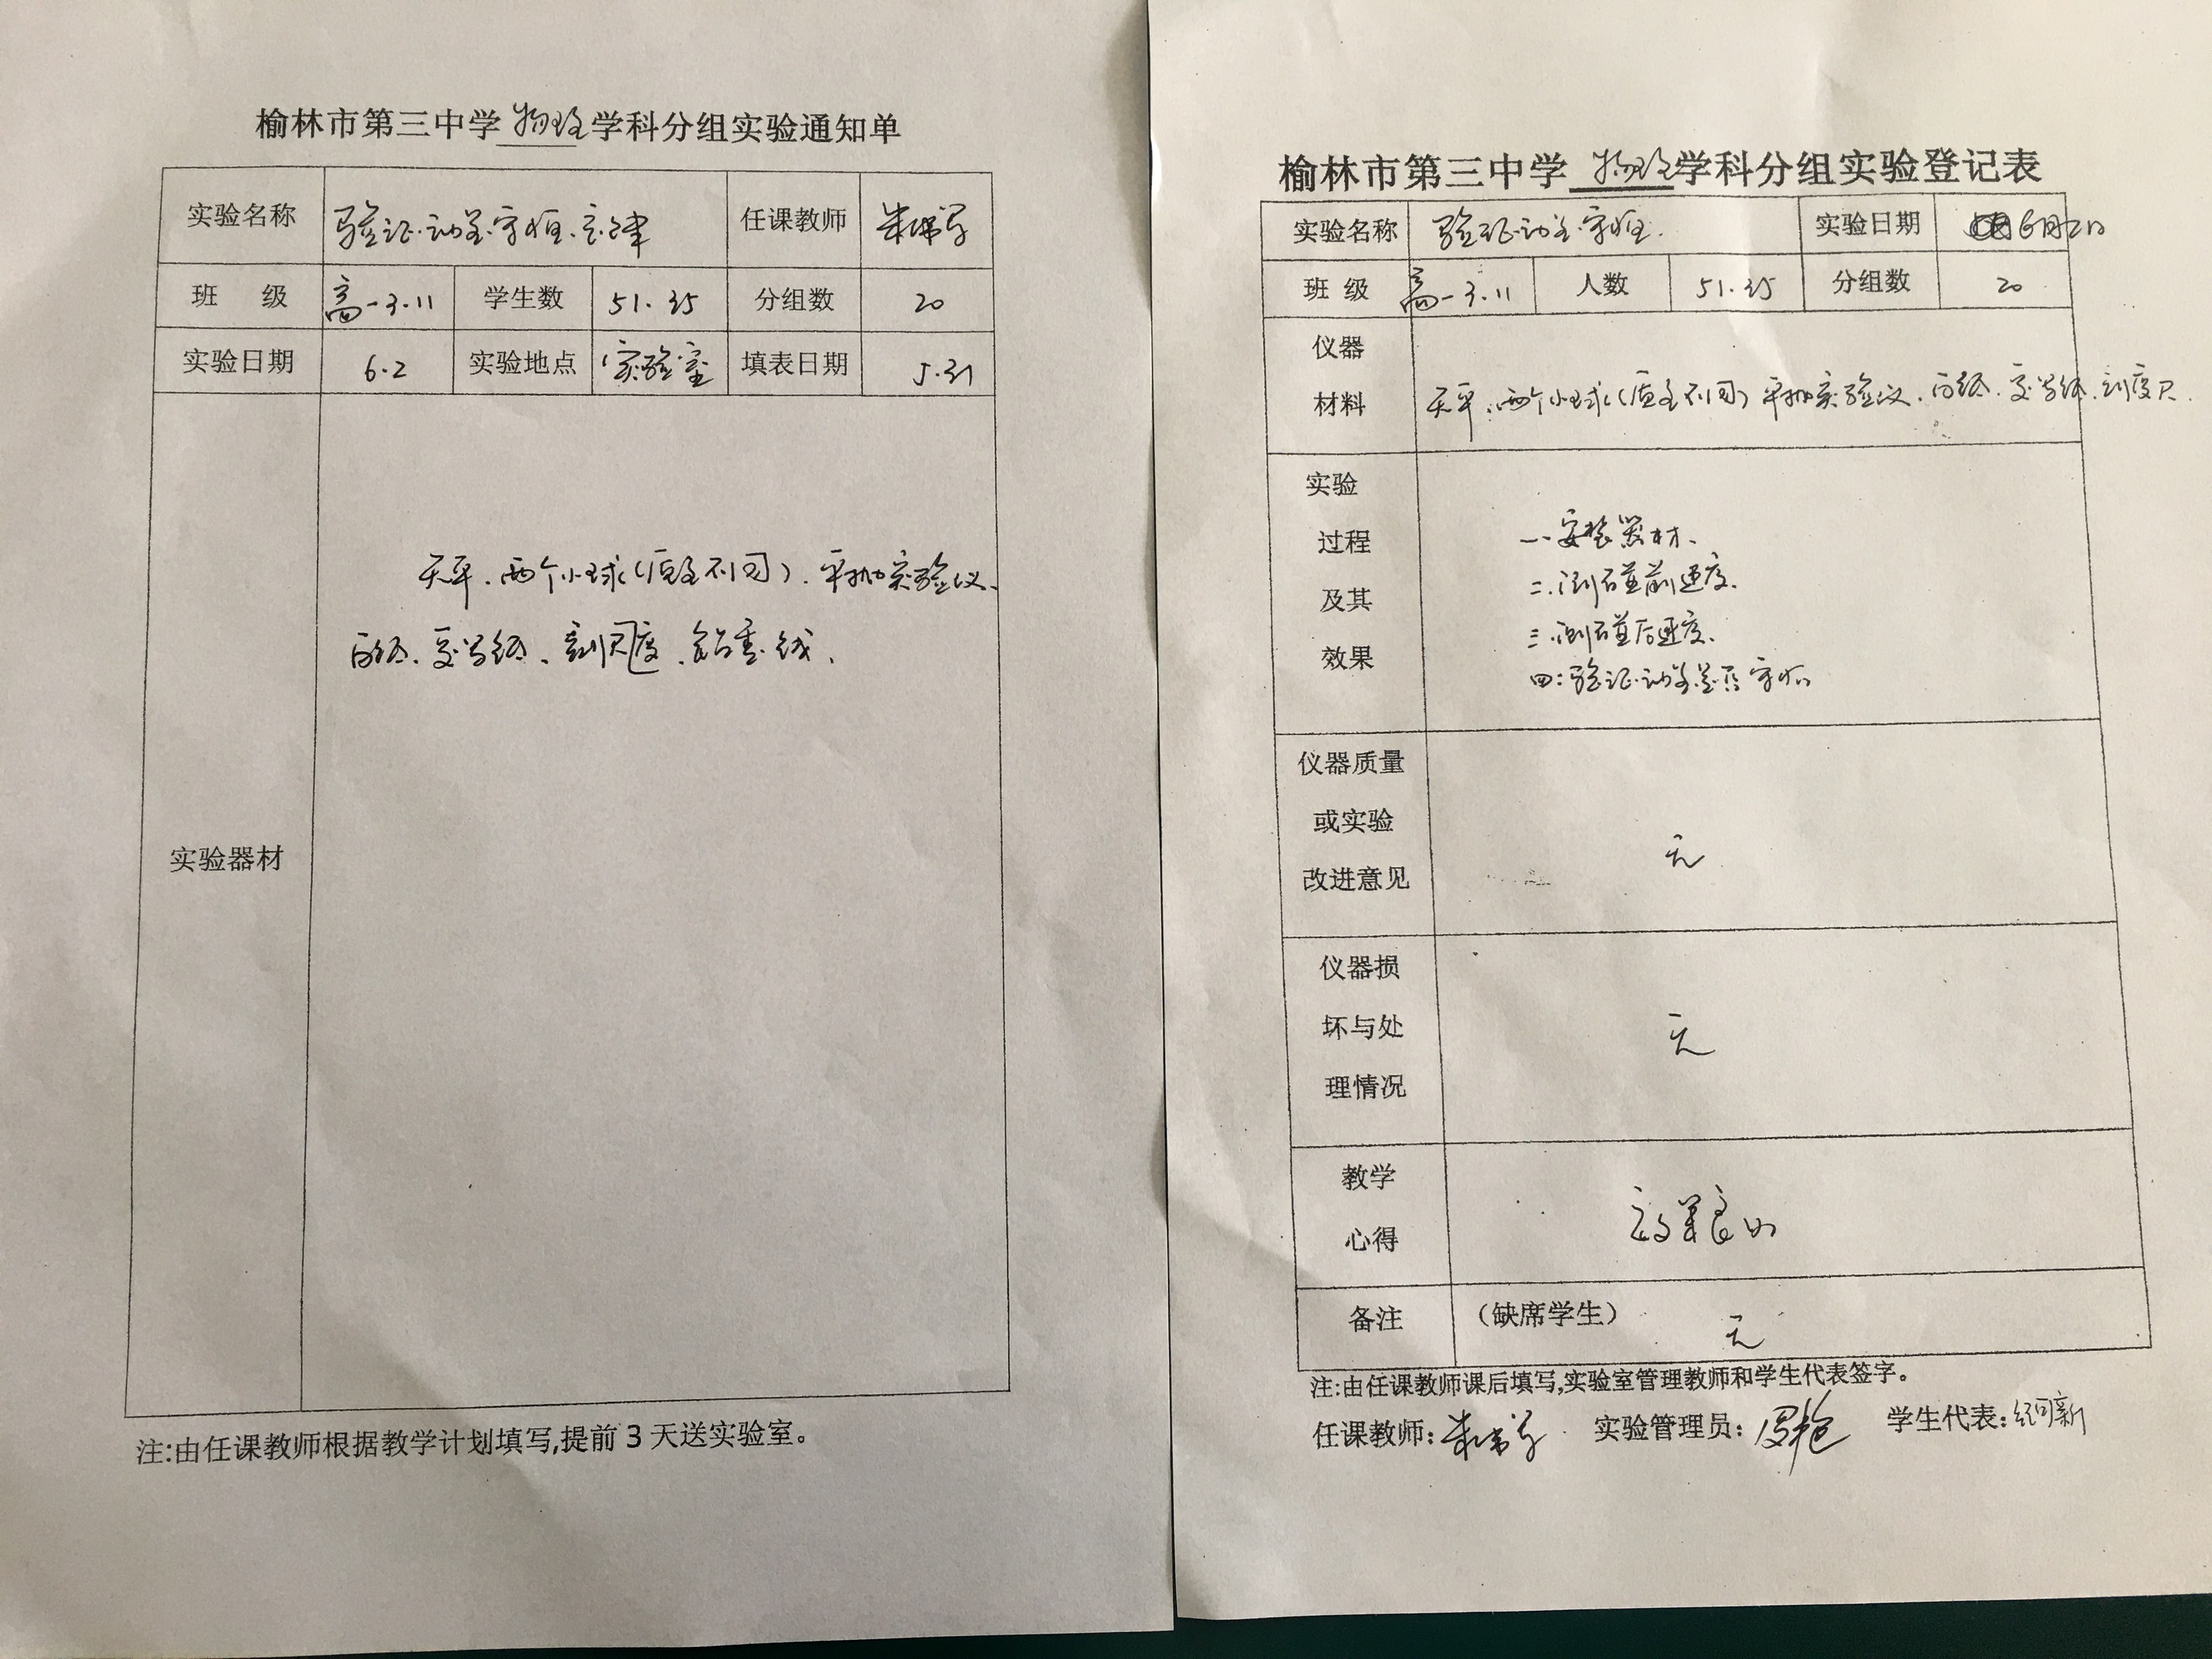 榆林市第三中学物理学科分组实验通知单
实验名称 验证动量守恒定律 任课教师
班 级 高一3.11 学生数 51.55 分组数 20
实验日期 6.2 实验地点 实验室 填表日期 5.31
实验器材
天平、两个小球(质量不同)、平抛实验仪、
白纸、复写纸、刻尺度、铅垂线、
注:由任课教师根据教学计划填写,提前3天送实验室。
榆林市第三中学物理学科分组实验登记表
实验名称 验证动量守恒. 实验日期 6月2日
班 级 高一3.11 人数 51.55 分组数 20
仪器
材料
天平、两个小球(质量不同)平抛实验仪、白纸、复写纸、刻度尺.
实验
过程
及其
效果
一、安装器材、
二、测碰前速度、
三、测碰后速度、
四:验证动量是否守恒
仪器质量
或实验
改进意见
无
仪器损
坏与处
理情况
无
教学
心得
效果良好
备注 (缺席学生)
无
注:由任课教师课后填写,实验室管理教师和学生代表签字。
任课教师: 实验管理员: 学生代表: